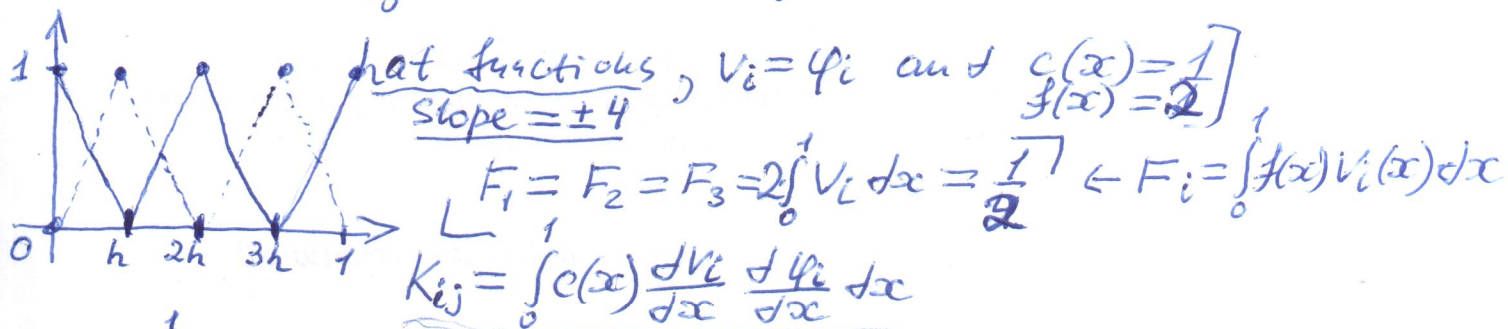 1 hat functions, Vi = φi and c(x) = 1
f(x) = 2]
slope = ±4
F₁ = F₂ = F₃ = 2∫₀¹ Vi dx = 1/2 ← Fi = ∫₀¹ f(x) Vi(x) dx
0 h 2h 3h 1
Kij = ∫₀¹ c(x) dVi/dx dφi/dx dx